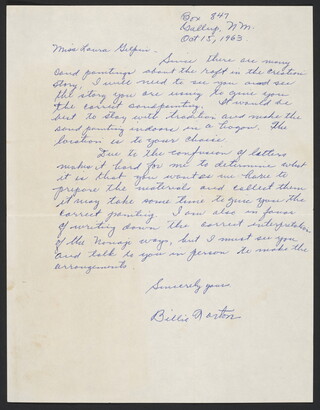 Box 847
Gallup, N.M.
Oct 15, 1963.
Miss Laura Gilpin.
Since there are many
sand paintings about the raft in the Creation
story, I will need to see you and see
the story you are using to give you
the correct sandpainting. It would be
best to stay with tradition and make the
sand painting indoors in a hogan. The
location is to your choice.
Due to the confusion of letters
makes it hard for me to determine what
it is that you want so we have to
prepare the materials and collect them
it may take some time to give you the
correct painting. I am also in favor
of writing down the correct interpretation
of the Navajo ways, but I must see you
and talk to you in person to make the
arrangements
Sincerely yours
Billie Norton